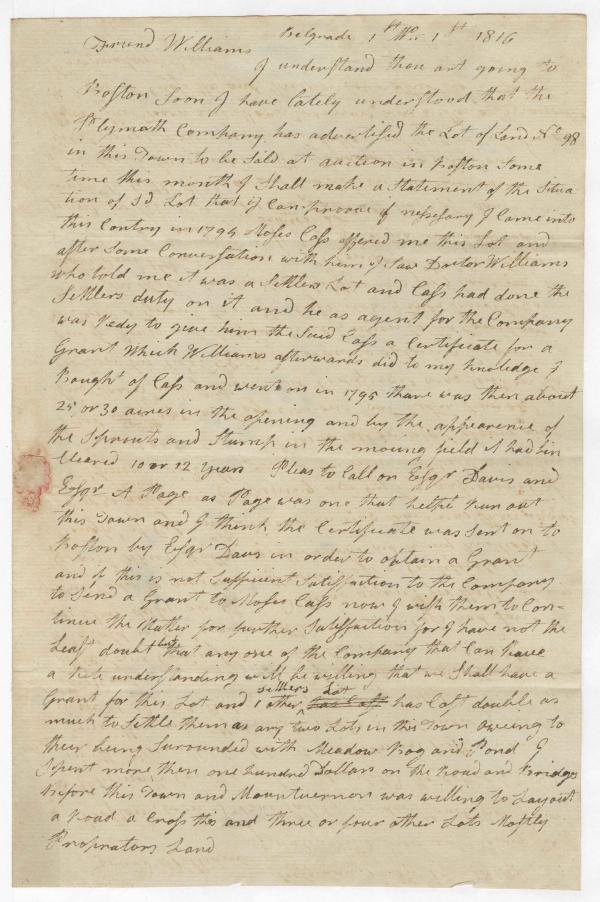 Belgrade 1st Mo. 1st 1816
Friend Williams
I understand thou art going to
Boston Soon I have lately understood that the
Plymoth Company has advertised the Lot of Land No 98
in this Town to be Sold at auction in Boston Some
time this month I Shall make a Statement of the Situa-
tion of Sd Lot that if Can proove if nessesary I Came into
this Contry in 1794 Moses Cass offered me this Lot and
after Some Conversation with him I Saw Doctor Williams
who told me it was a Settlers Lot and Cass had done the
Settlers duty on it and he as agent for the Company
was Redy to give him the Said Cass a Certificate for a
Grant Which Williams afterwards did to my knoledge I
Bought of Cass and went on in 1795 thare was then about
25 or 30 acres in the opening and by the appearence of
the Sprouts and Stumps in the mowing field it had bin
Cleared 10 or 12 Years Pleas to Call on Esqr Davis and
Esqr A Page as Page was one that helpt Run out
this Town and I think the Certificate was Sent on to
Boston by Esqr Davis in order to obtain a Grant
and if this is not Sufficient Satisfaction to the Company
to Send a Grant to Moses Cass now I wish them to Con-
tinue the Matter for further Satesfaction for I have not the
Least doubt but that any one of the Company that Can have
a rite understanding will be willing that we Shall have a
Grant for this Lot and 1 other settlers Lot has Cost double as
much to Settle them as any two Lots in this Town oweing to
their being Surounded with Meadow Bog and Pond I
Spent more then one hundred Dollars on the Road and Bridges
Before this Town and Mountvernon was willing to Layout
a Road a Cross this and three or four other Lots Mostly
Propriators Land